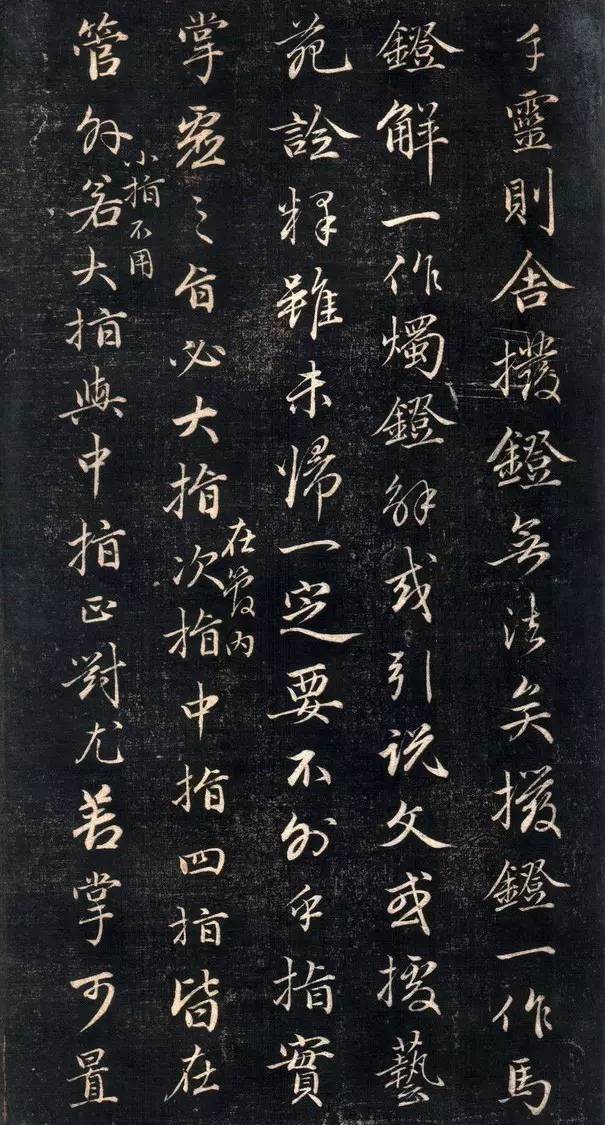 手靈則舍撥鐙無法矣撥鐙一作馬
鐙解一作燭鐙解或引説文或援藝
苑詮釋雖未歸一定要不外乎指實
在管内
掌虛之旨必大指次指中指四指皆在
小指不用
管外若大指與中指正對尤善掌可置